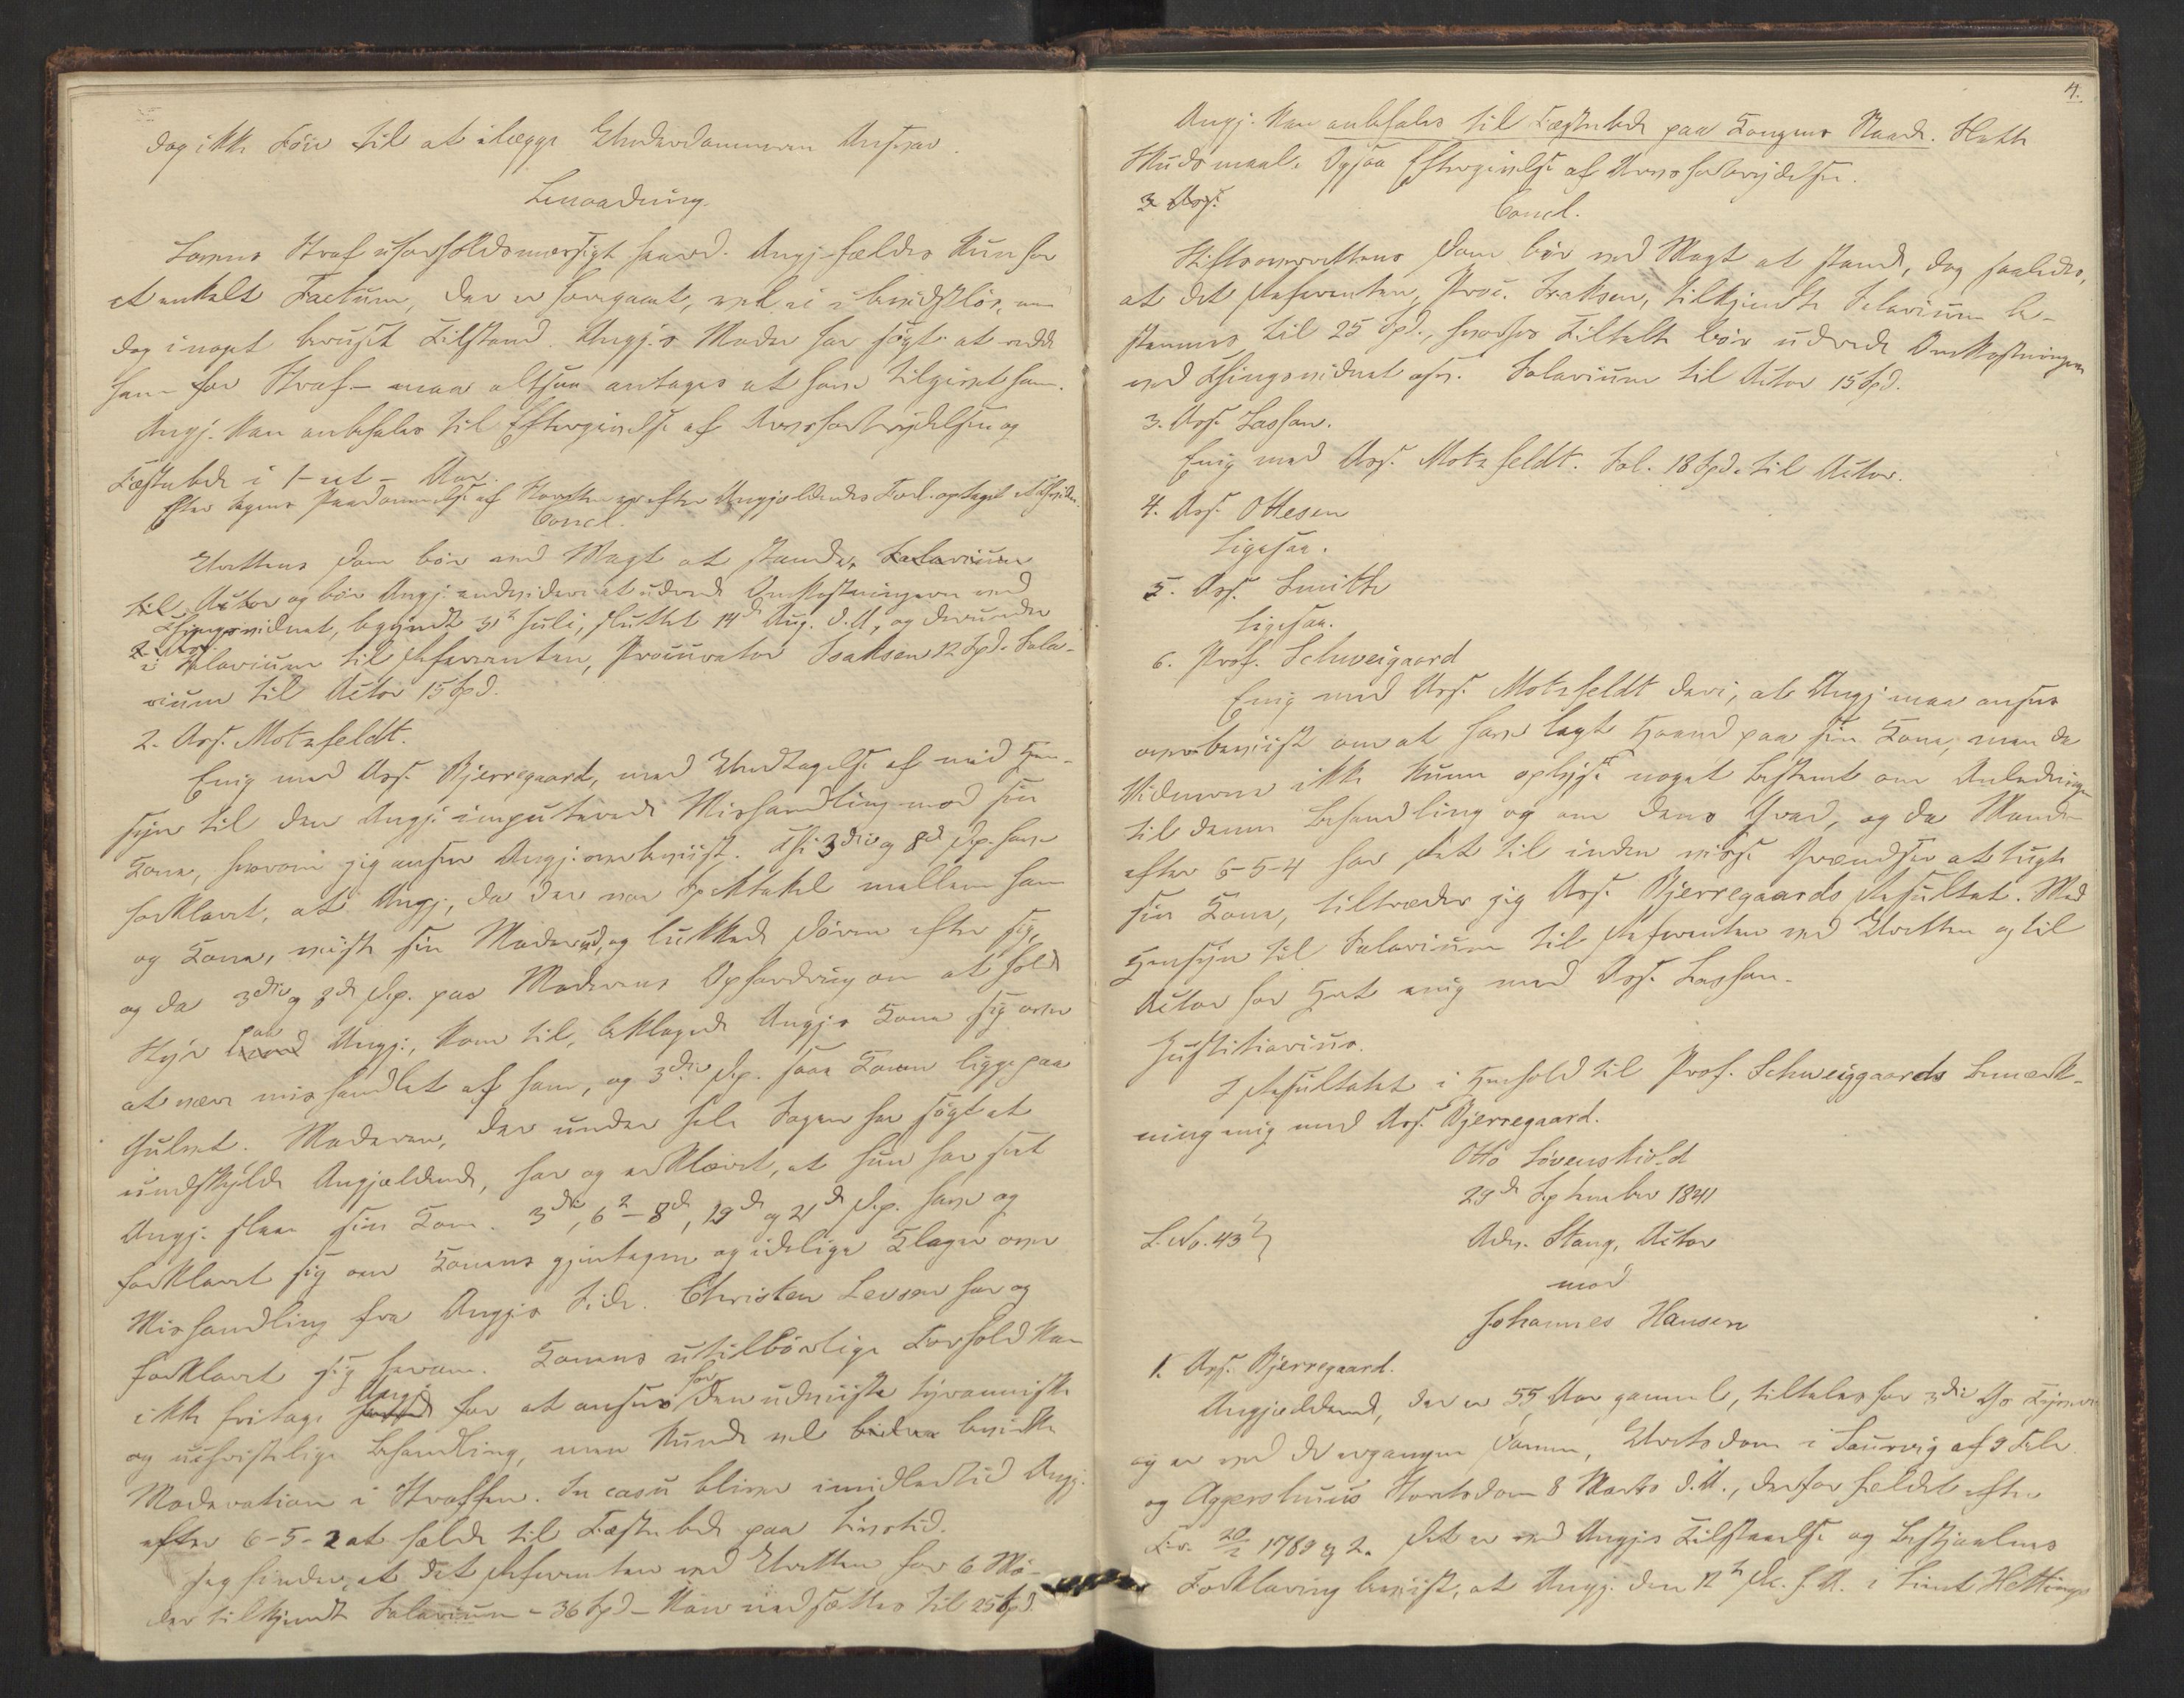 dog ikke Föie til at ilægge Underdommeren Ansvar.
Benaadning.
Lovens Straf uforholdsmæssigt haard. Angj. fældes kun for
et enkelt Factum, der er foregaaet, vel ei i bevidstlös, men
dog i noget beruset Tilstand. Angj.s Moder har sögt at redde
ham for Straf – maa altsaa antages at have tilgivet ham.
Angj. kan anbefales til Eftergivelse af Arvsforbrydelsen og
Fæstubde i 1 – et – Aar.
Efter Sagens Paadömmelse af Stiftsretten er efter Angjældendes Forl. optaget et Thingsvidne.
Concl.
Underrettens Dom bör ved Magt at stande, Salarium
til Actor og bör Angj. endvidere at udrede Omkostningerne ved
Thingsvidnet, begyndt 31te Juli, sluttet 14de Aug. d. A., og derunder
2 Ass.
i Salarium til Defensor, Procurator Isaksen 12 Spd. Sala-
rium til Actor 15 Spd.
2. Ass. Motzfeldt.
Enig med Ass. Bjerregaard, med Undtagelse af med Hen-
syn til den Angj. imputerede Mishandling mod sin
Kone, hvorom jeg anser Angj. overbeviist. Thi 3die og 8de Dep. have
forklaret, at Angj., da der var Spektakel mellem ham
og Konen, viste sin Moder ud, og lukkede Dören efter sig,
og da 3die og 8de Dep. paa Moderens Opfordring om at holde
Styr paa Angj., kom til, beklagede Angjs Kone sig over
at være mishandlet af ham, og 3die Dep. saae Konen ligge paa
Gulvet. Moderen, der under hele Sagen har sögt at
undskylde Angjældende, har og erklæret, at hun har seet
Angj. slaae sin Kone. 3die, 6te – 8de, 19de og 21de Dep. have og
forklaret sig om Konens gjentagne og idelige Klager over
Mishandling fra Angjs Side. Christen Leusen har og
forklaret sig herom. Konens utilbörlige Forhold kan
ikke fritage Angj. for at ansees for den udviiste tyranniske
og uchristelige Behandling, men kunde vel bevirke
Moderation i Straffen. In casu bliver imidlertid Angj.
efter 6-5-2 at fælde til Fæstubde paa Livstid.
Jeg finder, at det Defensor ved Underretten for 6 Mö-
der tilkjendte Salarium – 36 Spd – kan nedsættes til 25 Spd.
4.
Angj. kan anbefales til Fæstubde paa Kongens Naade. Slette
Skudsmaal. Ogsaa Eftergivelse af Arvsforbrydelse.
3 Ass.
Concl.
Stiftsoverrettens Dom bör ved Magt at stande, dog saaledes,
at det Defensor, Proc. Isaksen, tilkjendte Salarium be-
stemmes til 25 Spd., hvorhos Tiltalte bör udrede Omkostningerne
ved Thingsvidnet osv. Salarium til Actor 15 Spd.
3. Ass. Lasson.
Enig med Ass. Motzfeldt. Sal. 18 Spd. til Actor.
4. Ass. Ottesen
Ligesaa.
5. Ass. Smith
Ligesaa.
6. Prof. Schweigaard
Enig med Ass. Motzfeldt deri, at Angj. maa ansees
overbeviist om at have lagt Haand paa sin Kone, men da
Vidnerne ikke kunne oplyse noget bestemt om Anledningen
til denne Behandling og om dens Grad, og da Manden
efter 6-5-4 har Ret til inden visse Grændser at tugte
sin Kone, tiltræder jeg Ass. Bjerregaards Resultat. Med
Hensyn til Salarium til Defensor ved Underretten og til
Actor her Enig med Ass. Lasson.
Justitiarius.
I Resultatet i Henhold til Prof. Schweiggaards Bemærk-
ning enig med Ass. Bjerregaard.
Otto Lövenskiold
29de September 1841
L. No. 43
Adv. Stang, Actor
mod
Johannes Hansen
1. Ass. Bjerregaard.
Angjældende, der er 55 Aar gammel, tiltales for 3die Gs. Tyverie
og er ved de ergangne Domme, Underretsdom i Laurvig af 9 Febr.
og Aggershuus Stiftsdom 8 Marts d. A., derfor fældet efter
Fr. 20/2 1789 § 2. Det er ved Angjs Tilstaaelse og Bestjaalnes
Forklaring beviist, at Angj. den 12te Dec. f. A. i Simt Hettings